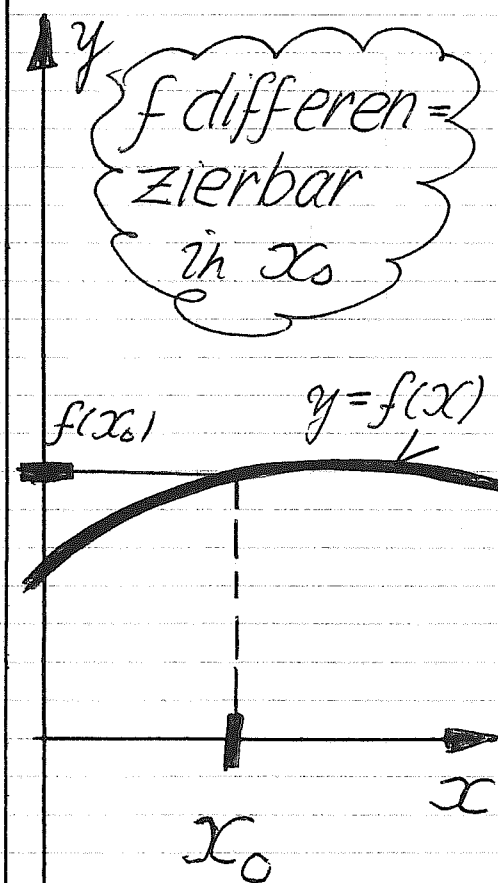 y
f differen=
zierbar
in x₀
f(x₀)
y=f(x)
x
x₀